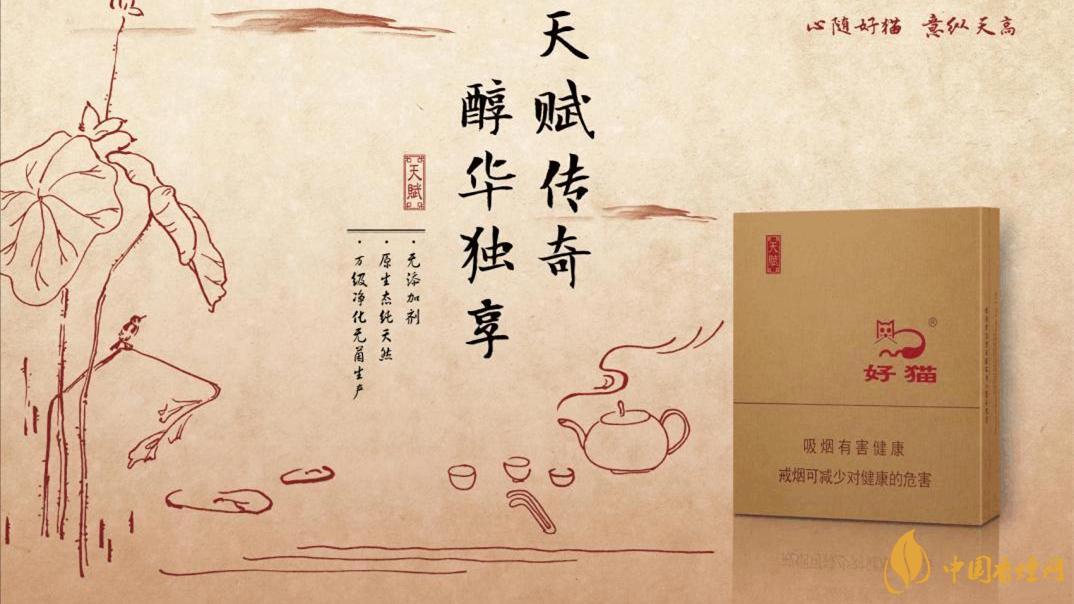 心随好猫 意纵天高
天赋传奇
醇华独享
天赋
·无添加剂
·原生态纯天然
·万级净化无菌生产
天赋
®
好猫
吸烟有害健康
戒烟可减少对健康的危害
中国香烟网